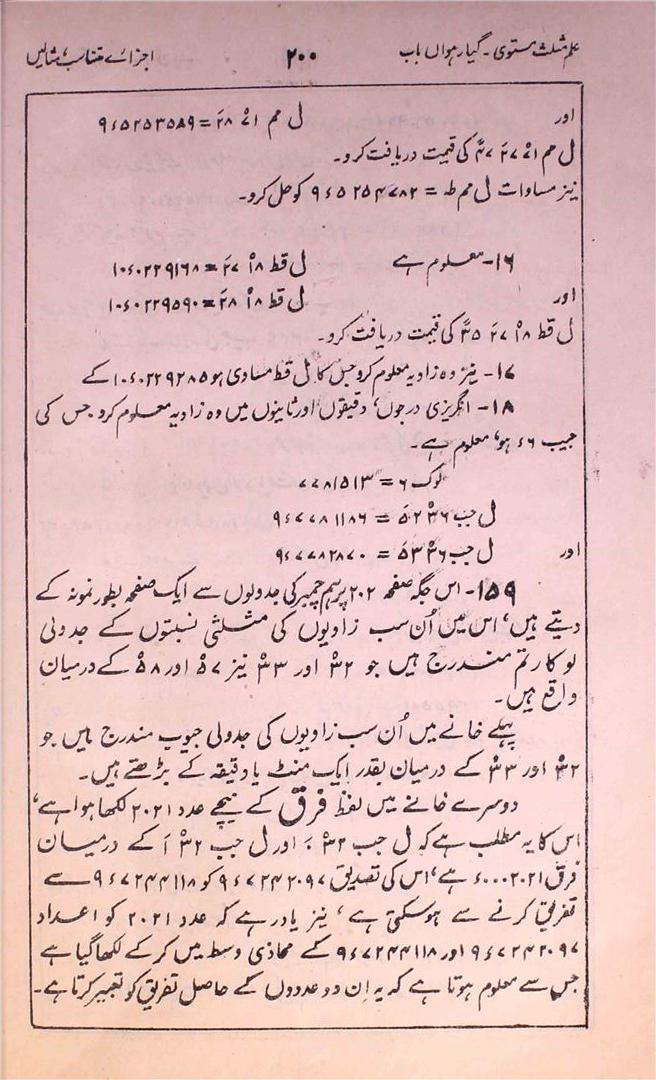 علم مثلث مستوی۔ گیارہواں باب ۲۰۰ اجزائے متناسب، مثالیں
اور ل مم ۷۱° ۲۸َ = ۹٤۵۲۵۳۵۸۹
ل مم ۷۱° ۲۷َ ۴۷ً کی قیمت دریافت کرو۔
نیز مساوات ل مم طہ = ۹٤۵۲۵۴۷۸۲ کو حل کرو۔
۱۶۔ معلوم ہے ل قط ۱۸° ۲۷َ = ۱۰٤۰۲۲۹۱۶۸
اور ل قط ۱۸° ۲۸َ = ۱۰٤۰۲۲۹۵۹۰
ل قط ۱۸° ۲۷َ ۳۵ً کی قیمت دریافت کرو۔
۱۷۔ نیز وہ زاویہ معلوم کرو جس کا ل قط مساوی ہو ۱۰٤۰۲۲۹۲۸۵ کے
۱۸۔ انگریزی درجوں، دقیقوں اور ثانیوں میں وہ زاویہ معلوم کرو جس کی
جیب ۶ء ہو، معلوم ہے۔
لوک ۶ = ۷۷۸۱۵۱۳
ل جب ۳۶° ۵۲َ = ۹٤۷۷۸۱۱۸۶
اور ل جب ۳۶° ۵۳َ = ۹٤۷۷۸۲۸۷۰
۱۵۹۔ اس جگہ صفحہ ۲۰۲ پر ہم چیمبر کی جدولوں سے ایک صفحہ بطور نمونہ کے
دیتے ہیں، اس میں اُن سب زاویوں کی مثلثی نسبتوں کے جدولی
لوکارتم مندرج ہیں جو ۳۲° اور ۳۳° نیز ۵۷° اور ۵۸° کے درمیان
واقع ہیں۔
پہلے خانے میں اُن سب زاویوں کی جدولی جیوب مندرج ہیں جو
۳۲° اور ۳۳° کے درمیان بقدر ایک منٹ یا دقیقہ کے بڑھتے ہیں۔
دوسرے خانے میں لفظ فرق کے نیچے عدد ۲۰۲۱ لکھا ہوا ہے،
اس کا یہ مطلب ہے کہ ل جب ۳۲° ۰َ اور ل جب ۳۲° ۱َ کے درمیان
فرق ۰۰۰۲۰۲۱ء ہے، اس کی تصدیق ۹٤۷۲۴۲۰۹۷ کو ۹٤۷۲۴۴۱۱۸ سے
تفریق کرنے سے ہوسکتی ہے، نیز یاد رہے کہ عدد ۲۰۲۱ کو اعداد
۹٤۷۲۴۲۰۹۷ اور ۹٤۷۲۴۴۱۱۸ کے محاذی وسط میں کرکے لکھا گیا ہے
جس سے معلوم ہوتا ہے کہ یہ اِن دو عددوں کے حاصل تفریق کو تعبیر کرتا ہے۔